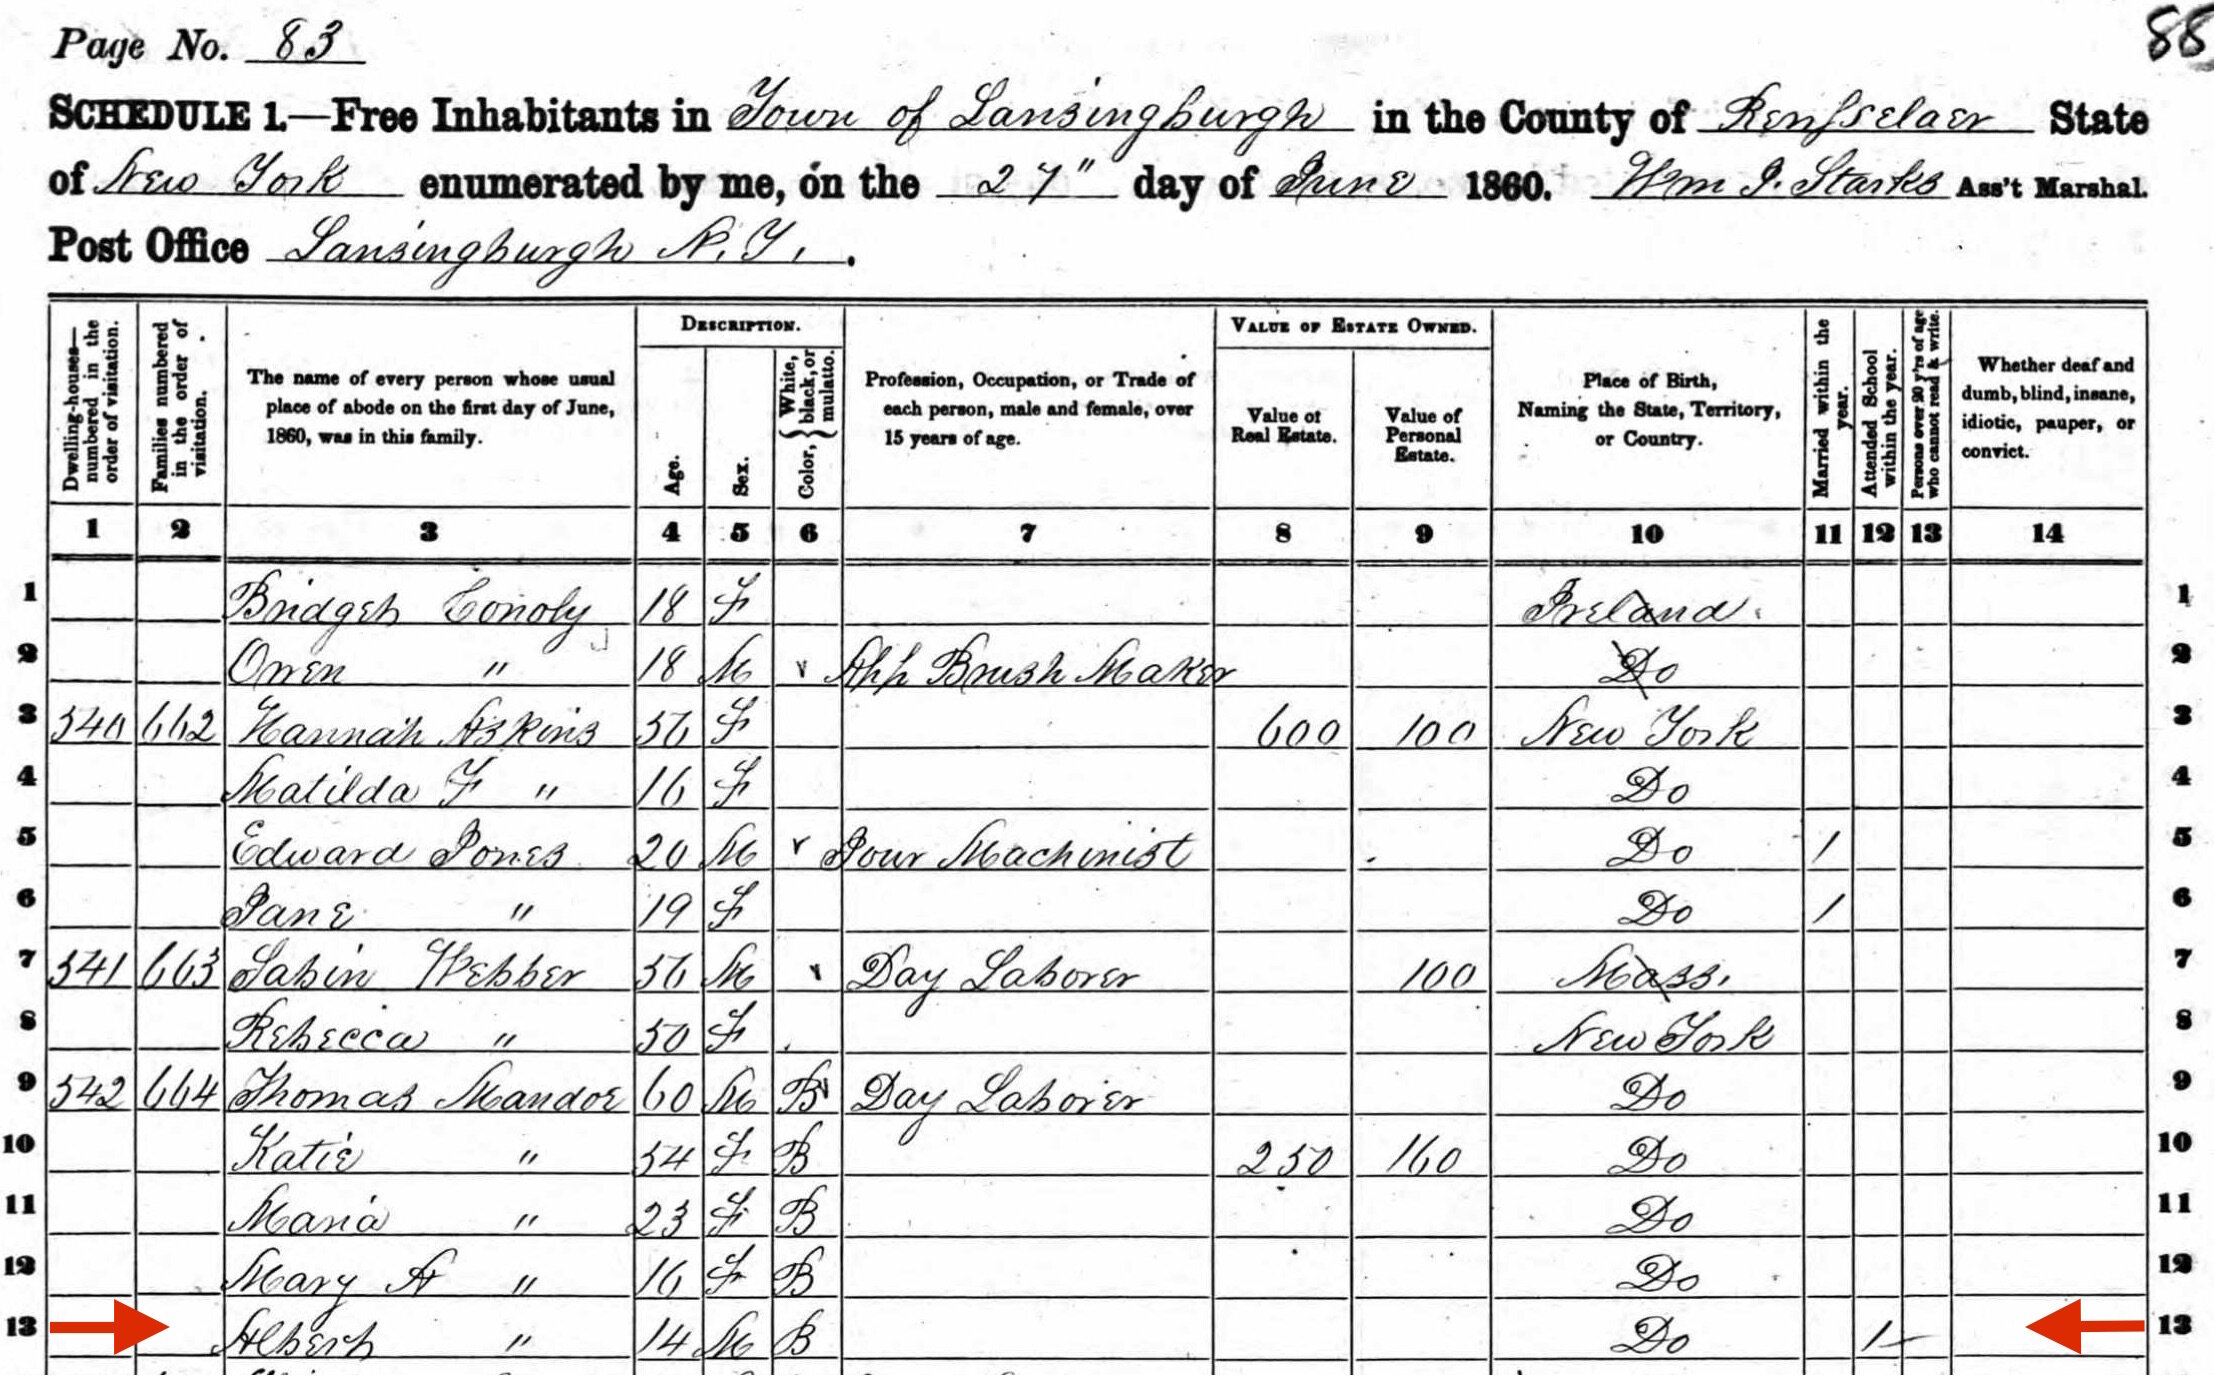 Page No. 83
88
SCHEDULE 1.—Free Inhabitants in Town of Lansingburgh in the County of Rensselaer State
of New York enumerated by me, on the 27" day of June 1860. Wm J. Starks Ass't Marshal.
Post Office Lansingburgh N.Y.
Dwelling-houses—numbered in the order of visitation.
Families numbered in the order of visitation.
The name of every person whose usual place of abode on the first day of June, 1860, was in this family.
DESCRIPTION.
Age.
Sex.
Color, { White, black, or mulatto.
Profession, Occupation, or Trade of each person, male and female, over 15 years of age.
VALUE OF ESTATE OWNED.
Value of Real Estate.
Value of Personal Estate.
Place of Birth, Naming the State, Territory, or Country.
Married within the year.
Attended School within the year.
Persons over 20 y'rs of age who cannot read & write.
Whether deaf and dumb, blind, insane, idiotic, pauper, or convict.
1 2 3 4 5 6 7 8 9 10 11 12 13 14
1 Bridget Conoly 18 F Ireland 1
2 Owen " 18 M App Brush Maker Do 2
3 540 662 Hannah Askins 56 F 600 100 New York 3
4 Matilda F " 16 F Do 4
5 Edward Jones 20 M Jour Machinist Do 1 5
6 Jane " 19 F Do 1 6
7 541 663 Sabin Webber 56 M Day Laborer 100 Mass. 7
8 Rebecca " 50 F New York 8
9 542 664 Thomas Mandoe 60 M B Day Laborer Do 9
10 Katie " 54 F B 250 160 Do 10
11 Maria " 23 F B Do 11
12 Mary A " 16 F B Do 12
13 Albert " 14 M B Do 1 13